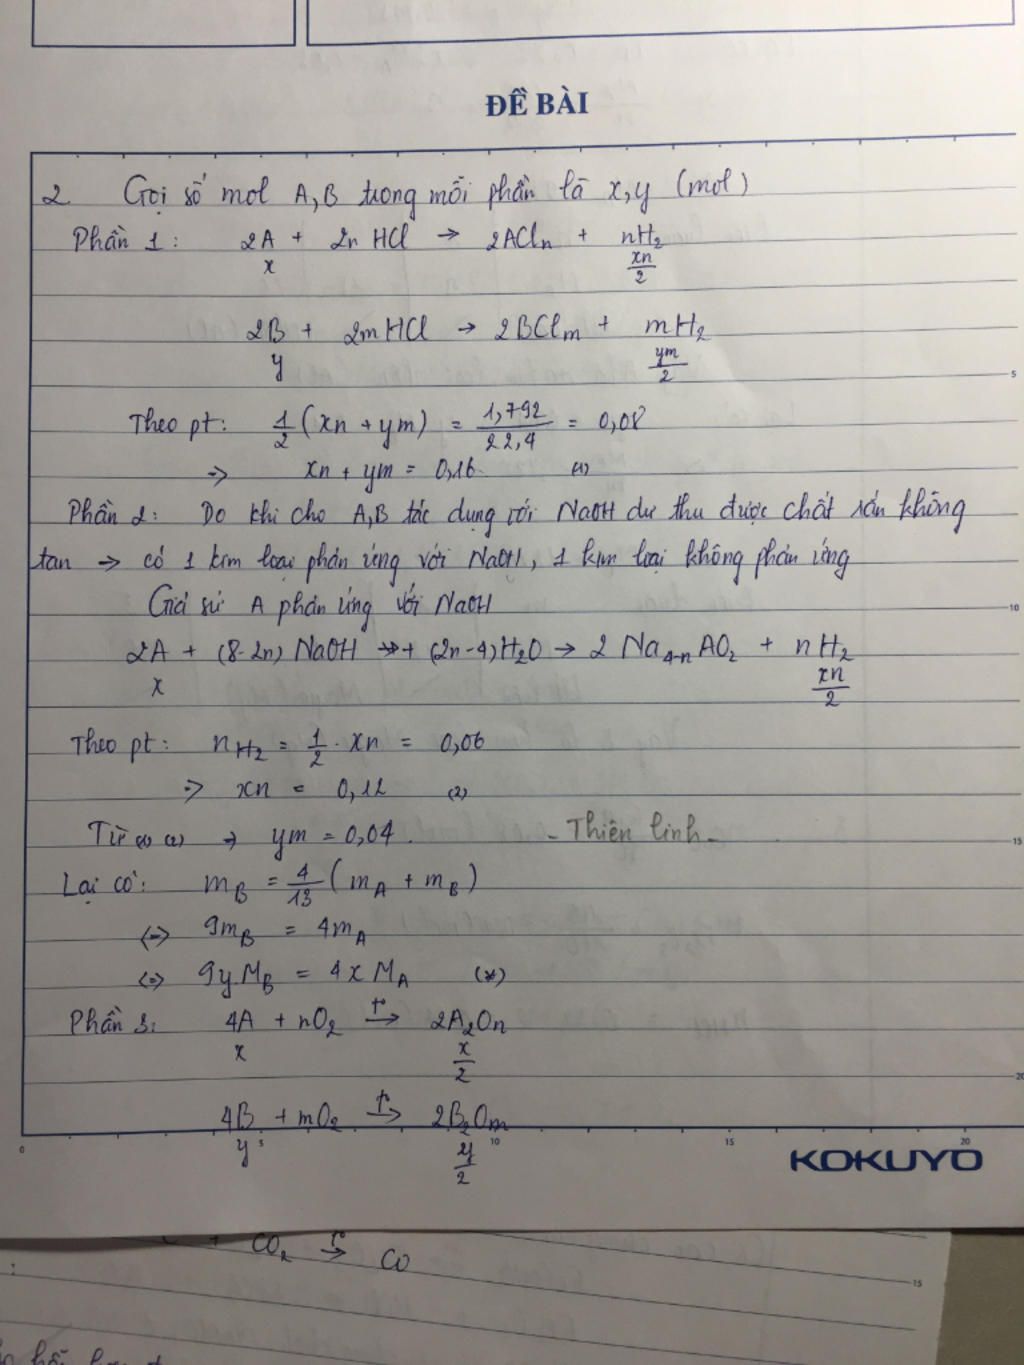 ĐỀ BÀI
2. Gọi số mol A, B trong mỗi phần là x, y (mol)
Phần 1: 2A + 2n HCl → 2ACln + nH2
x xn/2
2B + 2mHCl → 2BClm + mH2
y ym/2
5
Theo pt: 1/2 (xn + ym) = 1,792/22,4 = 0,08
=> xn + ym = 0,16 (1)
Phần 2: Do khi cho A, B tác dụng với NaOH dư thu được chất rắn không
tan → có 1 kim loại phản ứng với NaOH, 1 kim loại không phản ứng
Giả sử A phản ứng với NaOH
10
2A + (8-2n) NaOH + (2n-4)H2O → 2 Na4-nAO2 + nH2
x xn/2
Theo pt: nH2 = 1/2 . xn = 0,06
=> xn = 0,12 (2)
Từ (1) (2) → ym = 0,04. - Thiên linh -
15
Lại có: mB = 4/13 (mA + mB)
<=> 9mB = 4mA
<=> 9yMB = 4xMA (*)
Phần 3: 4A + nO2 t° → 2A2On
x x/2
20
4B + mO2 t° → 2B2Om
y y/2
0 5 10 15 20
KOKUYO
+ CO2 t° → CO
15